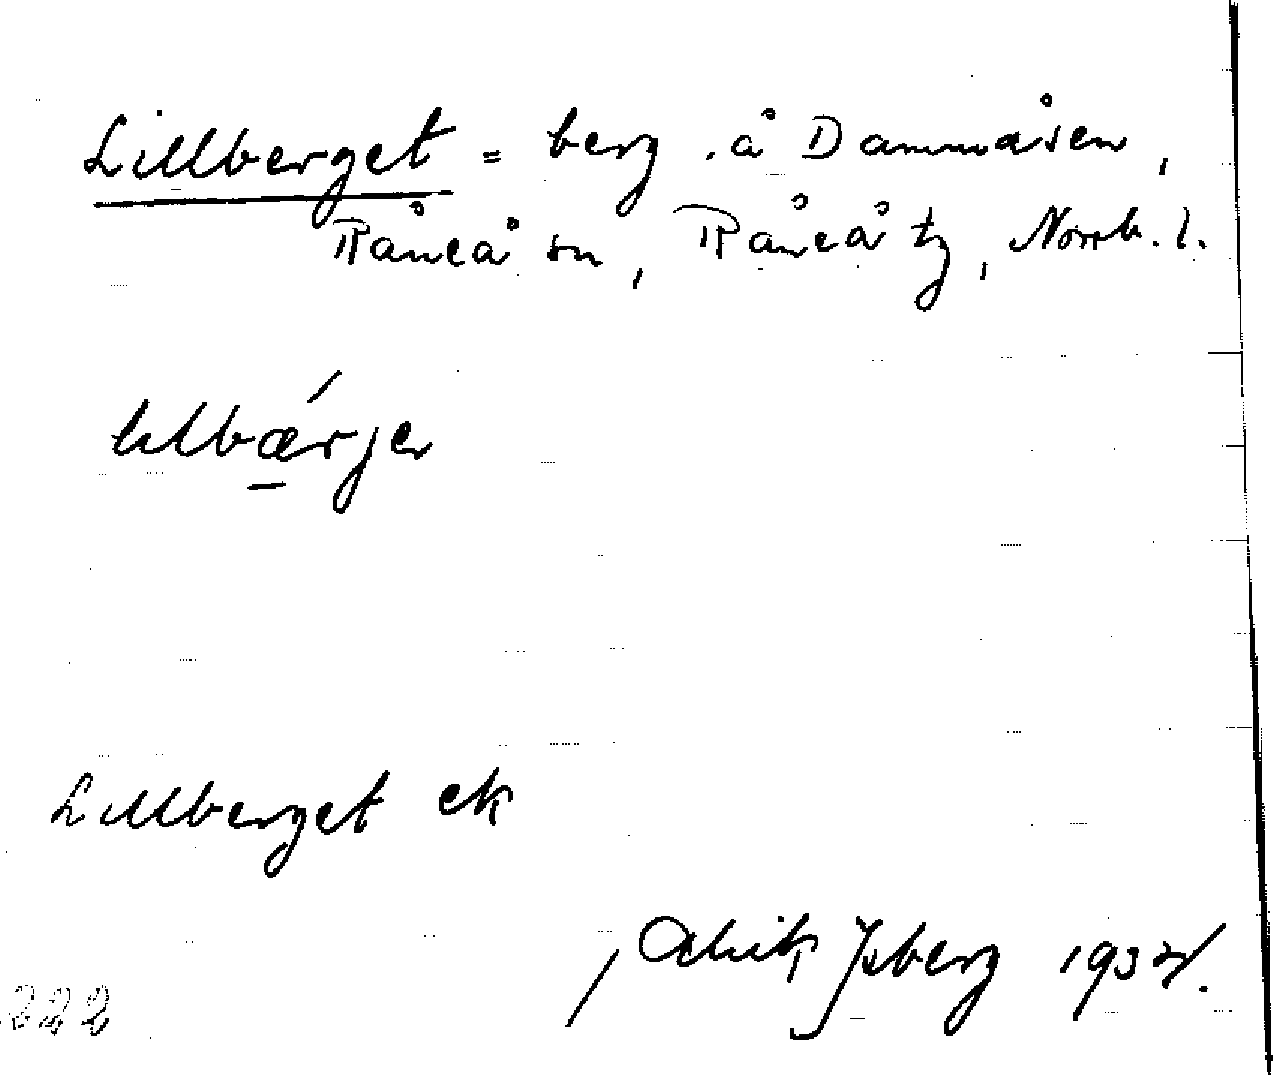 Lillberget = berg å Dammåsen,
Råneå sn, Råneå tg, Norrb. l.
Lillberget ek
/ Isberg 193
222